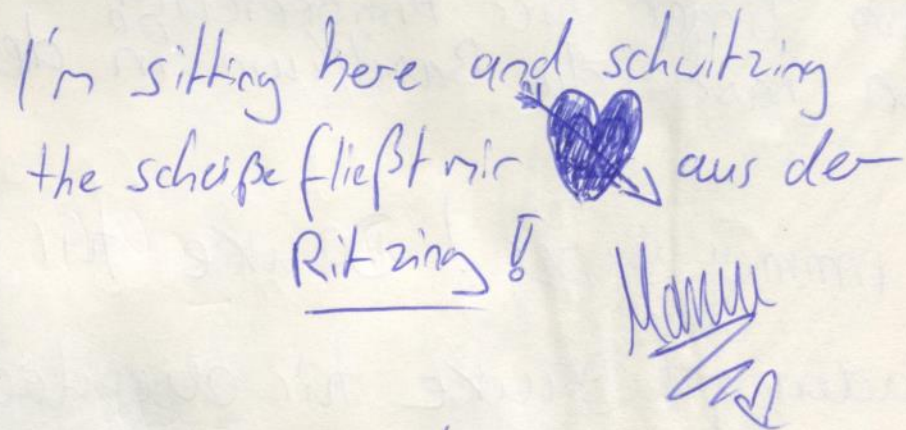 I'm sitting here and schwitzing
the scheiße fließt mir aus der
Ritzing!
Manu